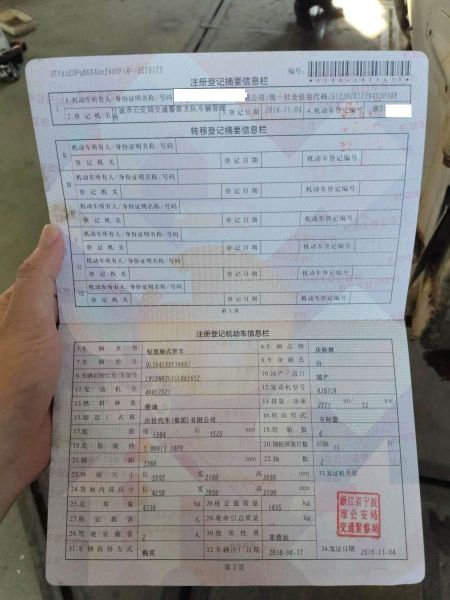 编号:
注册登记摘要信息栏
1.机动车所有人/身份证明名称/号码 公司/统一社会信用代码/
2.登记机关 宁波市公安局交通警察支队车辆管理所 3.登记日期 2016-11-04 4.机动车登记编号
转移登记摘要信息栏
Ⅱ 机动车所有人/身份证明名称/号码
登记机关 登记日期 机动车登记编号
Ⅲ 机动车所有人/身份证明名称/号码
登记机关 登记日期 机动车登记编号
机动车所有人/身份证明名称/号码
登记机关 登记日期 机动车登记编号
Ⅴ 机动车所有人/身份证明名称/号码
登记机关 登记日期 机动车登记编号
Ⅵ 机动车所有人/身份证明名称/号码
登记机关 登记日期 机动车登记编号
Ⅶ 机动车所有人/身份证明名称/号码
登记机关 登记日期 机动车登记编号
第1页
注册登记机动车信息栏
5.车辆类型 轻型厢式货车 6.车辆品牌 庆铃牌
7.车辆型号 8.车身颜色 白
9.车辆识别代号/车架号 10.国产/进口 国产
11.发动机号 12.发动机型号 4JB1CN
13.燃料种类 柴油 14.排量/功率 2771 ml/ 72 kw
15.制造厂名称 庆铃汽车(集团)有限公司 16.转向形式 方向盘
17.轮距 前 1504 后 1525 mm 18.轮胎数 6
19.轮胎规格 7.00R15 10PR 20.钢板弹簧片数 后轴 片
21.轴距 3360 mm 22.轴数 2
23.外廓尺寸 长 5995 宽 2160 高 3080 mm 33.发证机关章
24.货厢内部尺寸 长 4250 宽 2050 高 2100 mm
25.总质量 4330 kg 26.核定载质量 1495 kg
27.核定载客 人 28.准牵引总质量 kg
29.驾驶室载客 2 人 30.使用性质 非营运
31.车辆获得方式 购买 32.车辆出厂日期 2016-06-17 34.发证日期 2016-11-04
浙江省宁波
市公安局
交通警察局
第2页